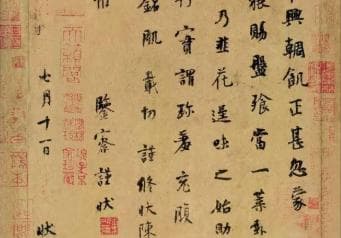 興輖飢正甚忽蒙
猥賜盤飧當一葉報
乃韭花逞味之始助
實謂珍羞充腹
銘肌載切謹修狀陳
鑒察謹狀
七月十一日 狀